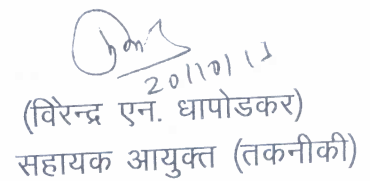 20/10/11
(विरेन्द्र एन. धापोडकर)
सहायक आयुक्त (तकनीकी)